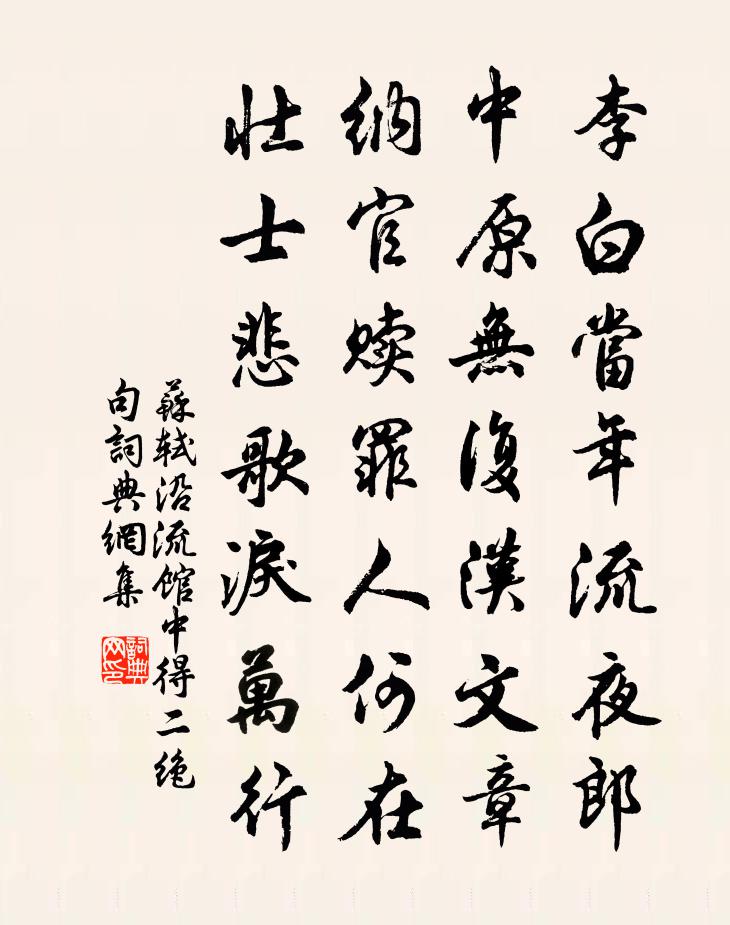 李白當年流夜郎
中原無復漢文章
納官贖罪人何在
壯士悲歌淚萬行
蘇軾沿流館中得二絕
句詞典網集
詞典
网印